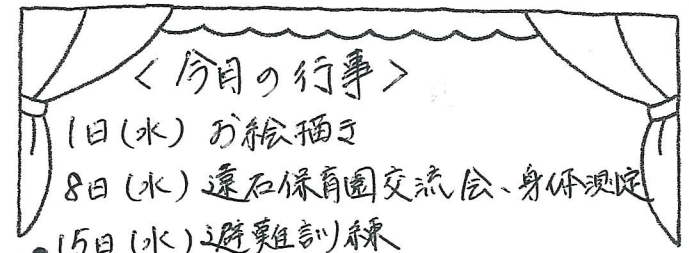 <今月の行事>
1日(水) お絵描き
8日(水) 遠石保育園交流会、身体測定
15日(水) 避難訓練